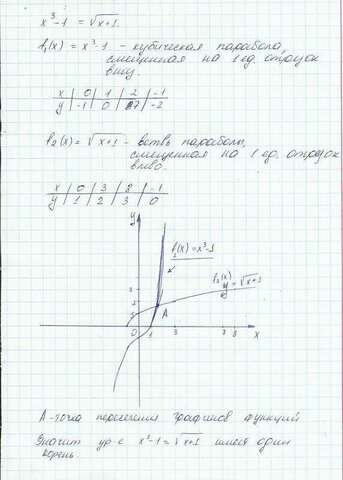 x³-1 = √x+1
f₁(x) = x³-1 - кубическая парабола,
смещенная на 1 ед. отрезок
вниз.
x | 0 | 1 | 2 | -1
y | -1 | 0 | 7 | -2
f₂(x) = √x+1 - ветвь параболы,
смещенная на 1 ед. отрезок
влево.
x | 0 | 3 | 8 | -1
y | 1 | 2 | 3 | 0
y
f₁(x) = x³-1
f₂(x)
y = √x+1
3
2
1
A
0 1 3 8 x
A - точка пересечения графиков функций
Значит ур-е x³-1 = √x+1 имеет один
корень